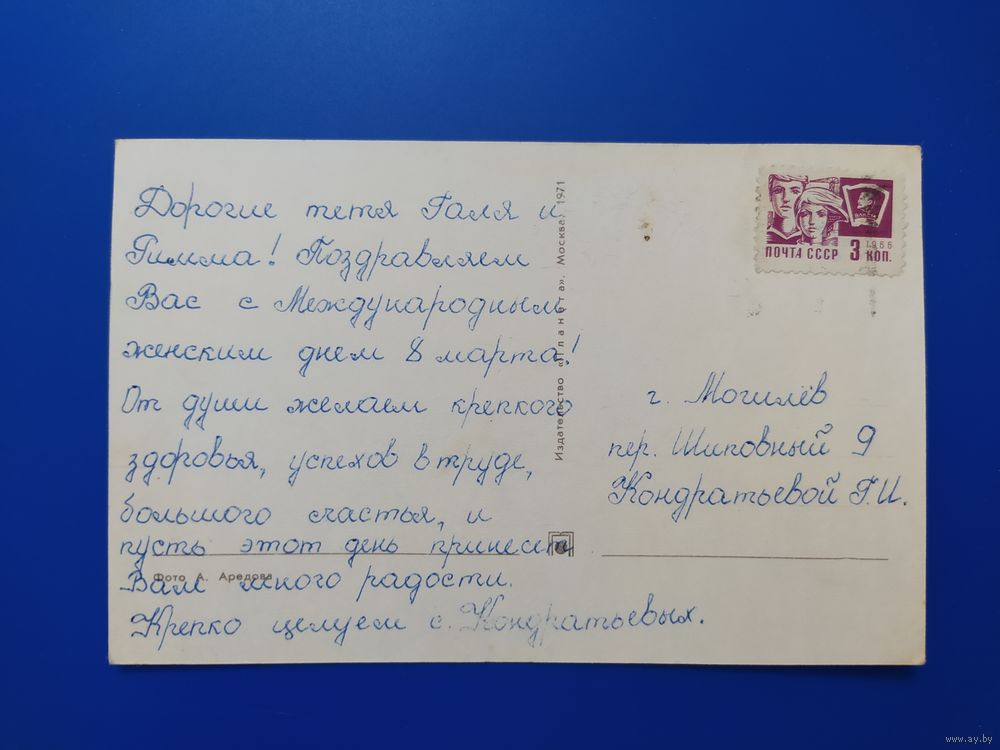 Дорогие тетя Галя и
Римма! Поздравляем
Вас с Международным
женским днем 8 марта!
От души желаем крепкого
здоровья, успехов в труде,
большого счастья, и
пусть этот день принесет
Вам много радости.
Крепко целуем с. Кондратьевых.
Фото А. Аредова
Издательство «Планета». Москва, 1971
ВЛКСМ
1966
ПОЧТА СССР 3 КОП.
г. Могилёв
пер. Шиповный 9
Кондратьевой Г.И.
www.ay.by